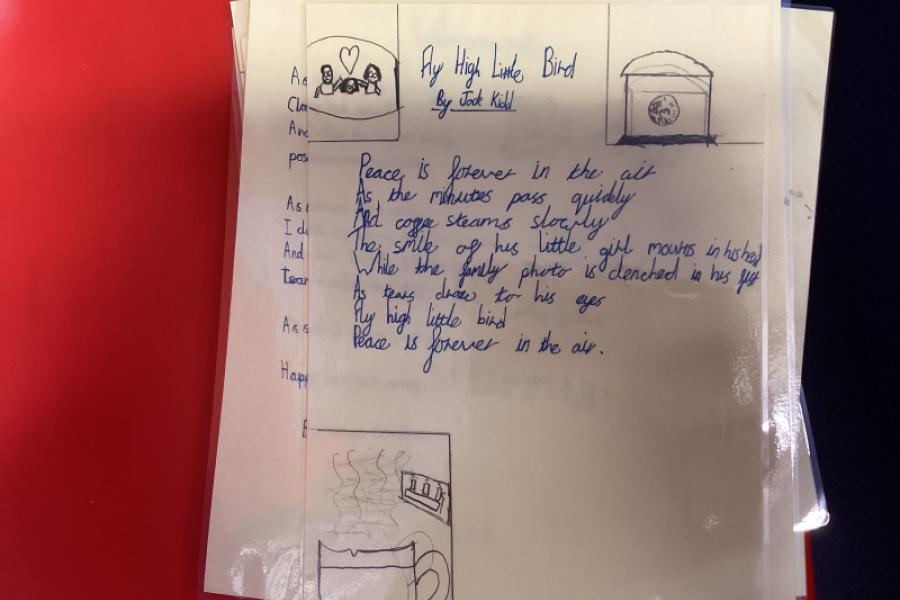 Fly High Little Bird
By Jack Kidd
Peace is forever in the air
As the minutes pass quickly
And coffee steams slowly
The smile of his little girl mourns in his head
While the family photo is clenched in his fist
As tears draw to his eyes
Fly high little bird
Peace is forever in the air.
As
And
pos
As
I
And
tear
As s
Happ